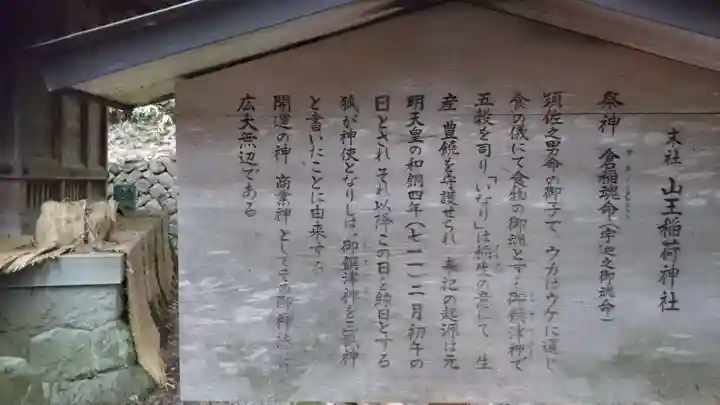 末社 山王稲荷神社
祭神 倉稲魂命(宇迦之御魂命)
須佐之男命の御子で ウカはウケに通じ
食の儀にて食物の御魂とす 御饌津神で
五穀を司り「いなり」は稲生の意にて 生
産 豊饒を守護せられ 奉祀の起源は元
明天皇の和銅四年(七一一)二月初午の
日とされ それ以降この日を縁日とする
狐が神使となりしは、御饌津神を三狐神
と書いたことに由来する
開運の神 商業神 としてその御神
広大無辺である